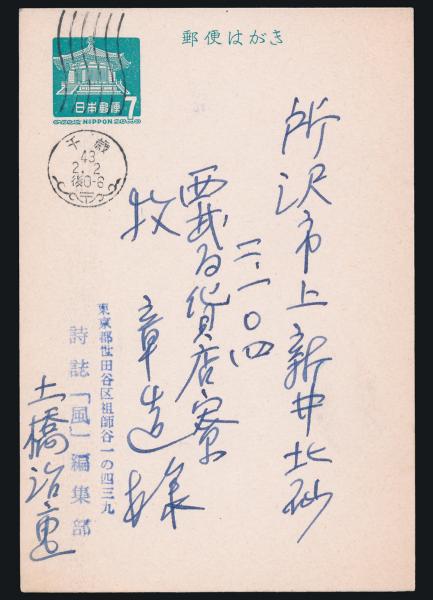 郵便はがき
日本郵便 7
NIPPON
千歳
43
2.2
後0-6
所沢市上新井北砂
二一〇四
西武百貨店寮
牧 章造様
東京都世田谷区祖師谷一の四三九
詩誌「風」編集部
土橋治重